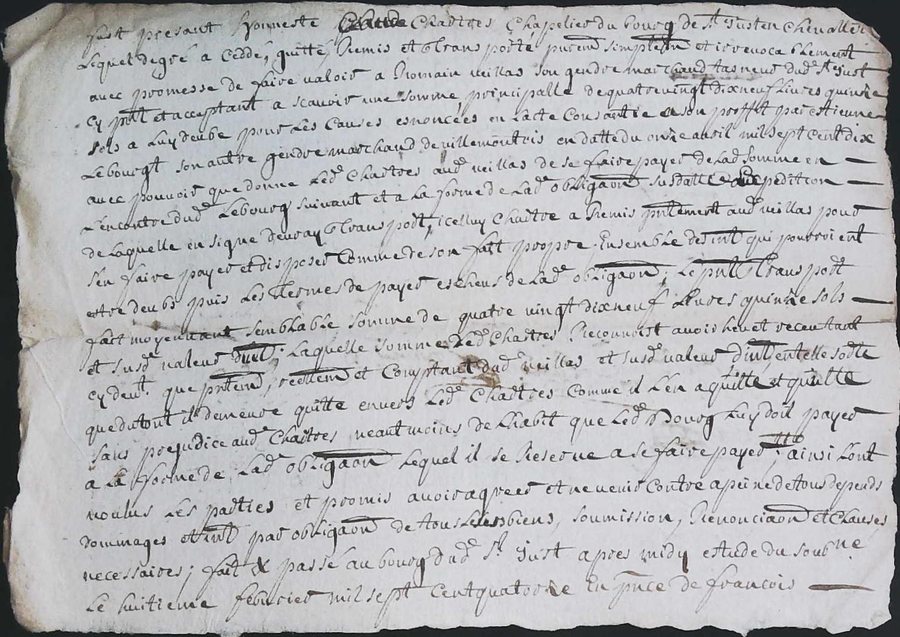 fust presant honneste Claude Chartres Chapelier du bourg de St Just en Chevallet
Lequel de gré a Ceddé, quitté, Remis et btransporté purem simplem et irevocablement
avec promesse de faire valoir a Romain veillas son gendre marchand tasneur dud St Just
Cy pnt et acceptant a scavoir une somme principalle de quatre vingt dix neuf Livres quinze
sols a Luy deube pour les Causes enoncées en Lacte Consantie a son proffit par estienne
Lebourgt son autre gendre marchand de villemontois en datte du onze avril mil sept cent dix
avec pouvoir que donne Led Chartres aud veillas de se faire payer de Lad somme en —
Lencontre dud Lebourg suivant et a La forme de Lad obligaon susdatte expedition —
de Laquelle en signe de vray btransport, icelluy Chartre a Remis pntement aud veillas pour
s'en faire payer et disposer Comme de son fait propre. Ensemble des int qui pourroient
estre deubs puis Les termes de payes escheus de Lad obligaon; Le pnt btransport
fait moyennant semblable somme de quatre vingt dix neuf Livres quinze sols —
et susd valeur dint; Laquelle somme Led Chartres Reconnoist avoir heu et receu tant
cy devt que pntem, réellem et Comptant dud veillas et susd valeur dint, en telle sorte
que du tout il demeure quitte envers Led Chartres Comme il L'en a quitté et quitte
sans prejudice aud Chartres neantmoins de L'habit que Led Lebourg Luy doit payer
a La forme de Lad obligaon Lequel il se Reserve a se faire payer; ainsi L'ont
voulus Les parties et promis avoir agrées et ne venir Contre a peine de tous depends
dommages et int par obligaon de tous Leurs biens, soumission, Renonciaon et Clauses
necessaires; fait & passé au bourg dud St Just apres midy estude du soubne
Le huitieme febvrier mil sept Cent quatorze En pnce de françois —